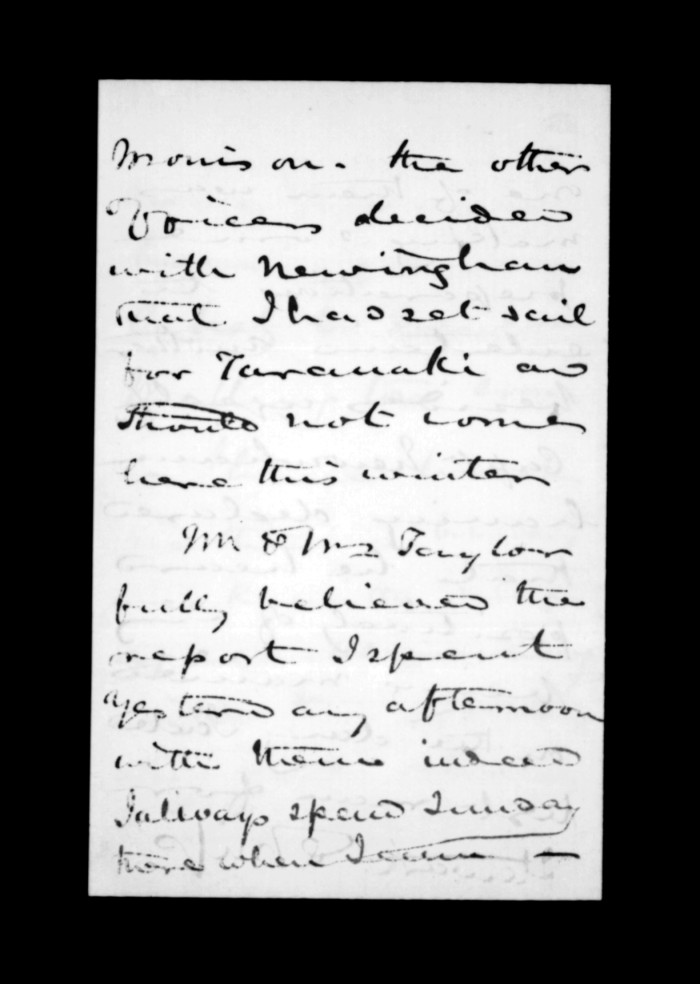 Morrison. the other
Voices decided
with Newingham
that I had set sail
for Taranaki and
should not come
here this winter
Mr & Mrs Taylor
fully believed the
report I spent
yesterday afternoon
with them indeed
I always spend Sunday
here when I can —